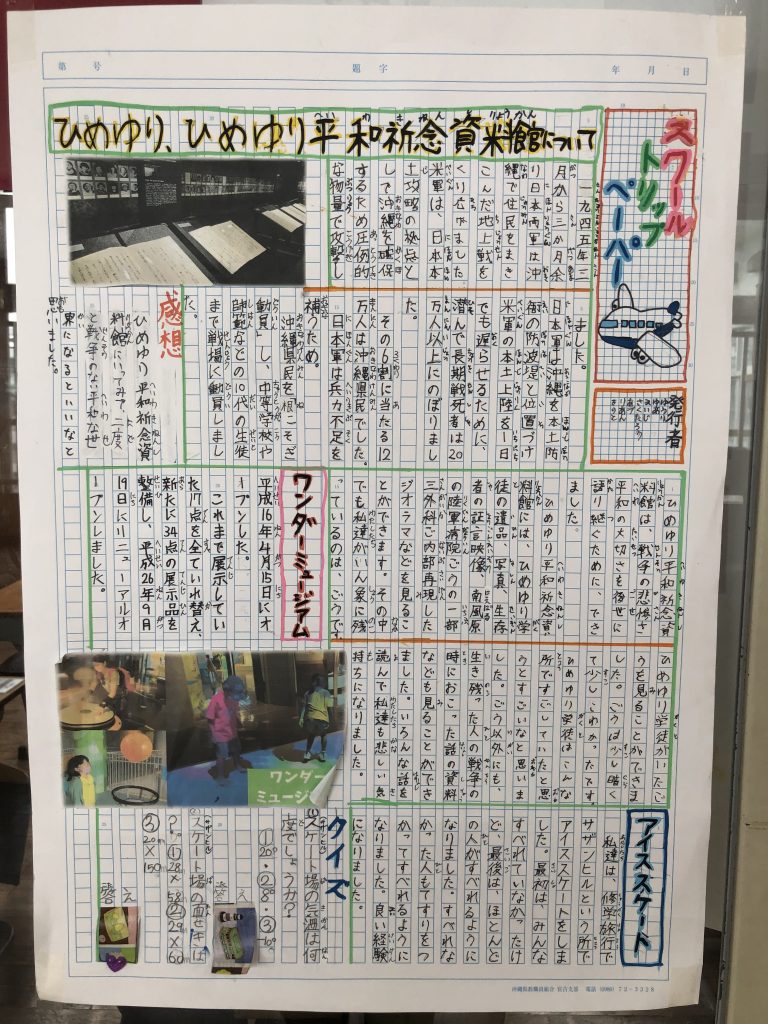 第 号
題 字
年 月 日
ひめゆり、ひめゆり平和祈念資料館について
スクール
トリップ
ペーパー
発行者
一九四五年三
月から三か月余
り日本両軍は沖
縄で住民をまき
こんだ地上戦を
くり広げました
米軍は、日本本
土攻略の拠点と
して沖縄を確保
するため圧倒的
な物量で攻撃し
ました。
日本軍は沖縄を本土防
衛の防波堤と位置づけ
米軍の本土上陸を1日
でも遅らせるために、
潜んで長期戦死者は20
万人以上にのぼりまし
た。
その6割に当たる12
万人は沖縄県民でした。
日本軍は兵力不足を
補うため。
沖縄県民を「根こそぎ
動員」し、中等学校や
師範などの10代の生徒
まで戦場に動員しまし
た。
感想
ひめゆり平和祈念資
料館にいってみて、二度
と戦争のない平和なせ
界になるといいなと
思いました。
ひめゆり平和祈念資
料館は、戦争の悲惨さ
平和の大切さを後世に
語り継ぐために、でき
ました。
ひめゆり平和祈念資
料館には、ひめゆり学
徒の遺品、写真、生存
者の証言映像、南風原
の陸軍病院ごうの一部
三外科ご内部再現した
ジオラマなどを見るこ
とができます。その中
でも私達がいん象に残
っているのは、ごうです
ひめゆり学徒がいたご
うを見ることができま
した。ごうは少し暗く
て少しこわかったです。
ひめゆり学徒はこんな
所ですごしていたと思
うとすごいなと思いま
した。ごう以外にも、
生き残った人の戦争の
時におこった話の資料
なども見ることができ
ました。いろんな話を
読んで私達も悲しい気
持ちになりました。
ワンダーミュージアム
平成16年4月15日にオ
ープンした。
これまで展示してい
た17点を全ていれ替え、
新たに34点の展示品を
整備し、平成26年9月
19日にリニューアルオ
ープンしました。
ワンダー
ミュージ
アイススケート
私達は、修学旅行で
サザンヒルという所で
アイススケートをしま
した。最初は、みんな
すべれていなかったけ
ど、最後は、ほとんど
の人がすべれるように
なりました。すべれな
かった人もてすりをつ
かってすべれるように
なりました。良い経験
になりました。
クイズ
(1)スケート場の気温は何
度でしょうか?
①20°・②8°・③-10°
答え
(2)スケート場の面せきは
?。①28×58②29×60m
③20×150m
答え
沖縄県教職員組合 宮古支部 電話(0980)72-3328